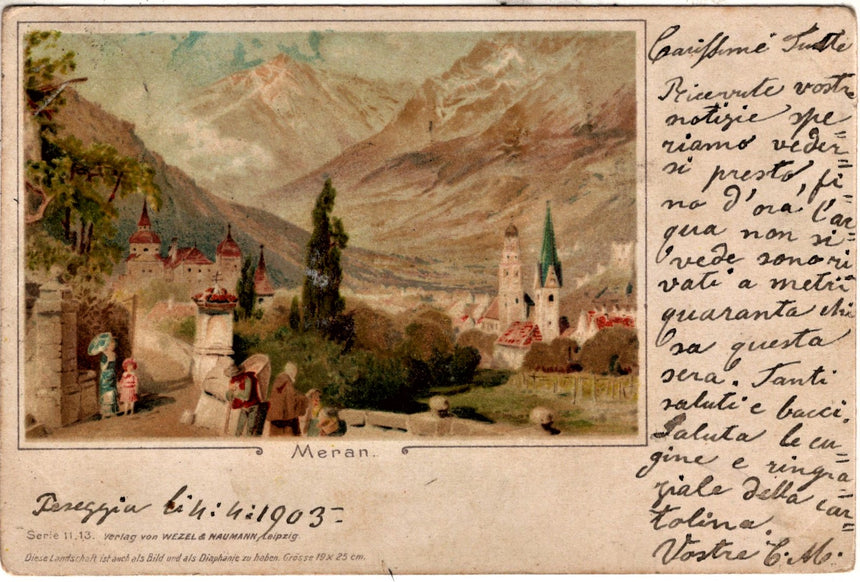 Carissime Tutte
Ricevute vostre
notizie spe=
riamo veder=
si presto, fi=
no d'ora l'ac=
qua non si
vede sono ri=
vati a metri
quaranta chi
sa questa
sera. Tanti
saluti e bacci.
Saluta le cu=
gine e ringra=
ziale della car=
tolina.
Vostre C. M.
Meran.
Peseggia li 4: 4: 1903=
Serie 11,13. Verlag von WEZEL & NAUMANN, Leipzig
Diese Landschaft ist auch als Bild und als Diaphanie zu haben. Grösse 19 x 25 cm.